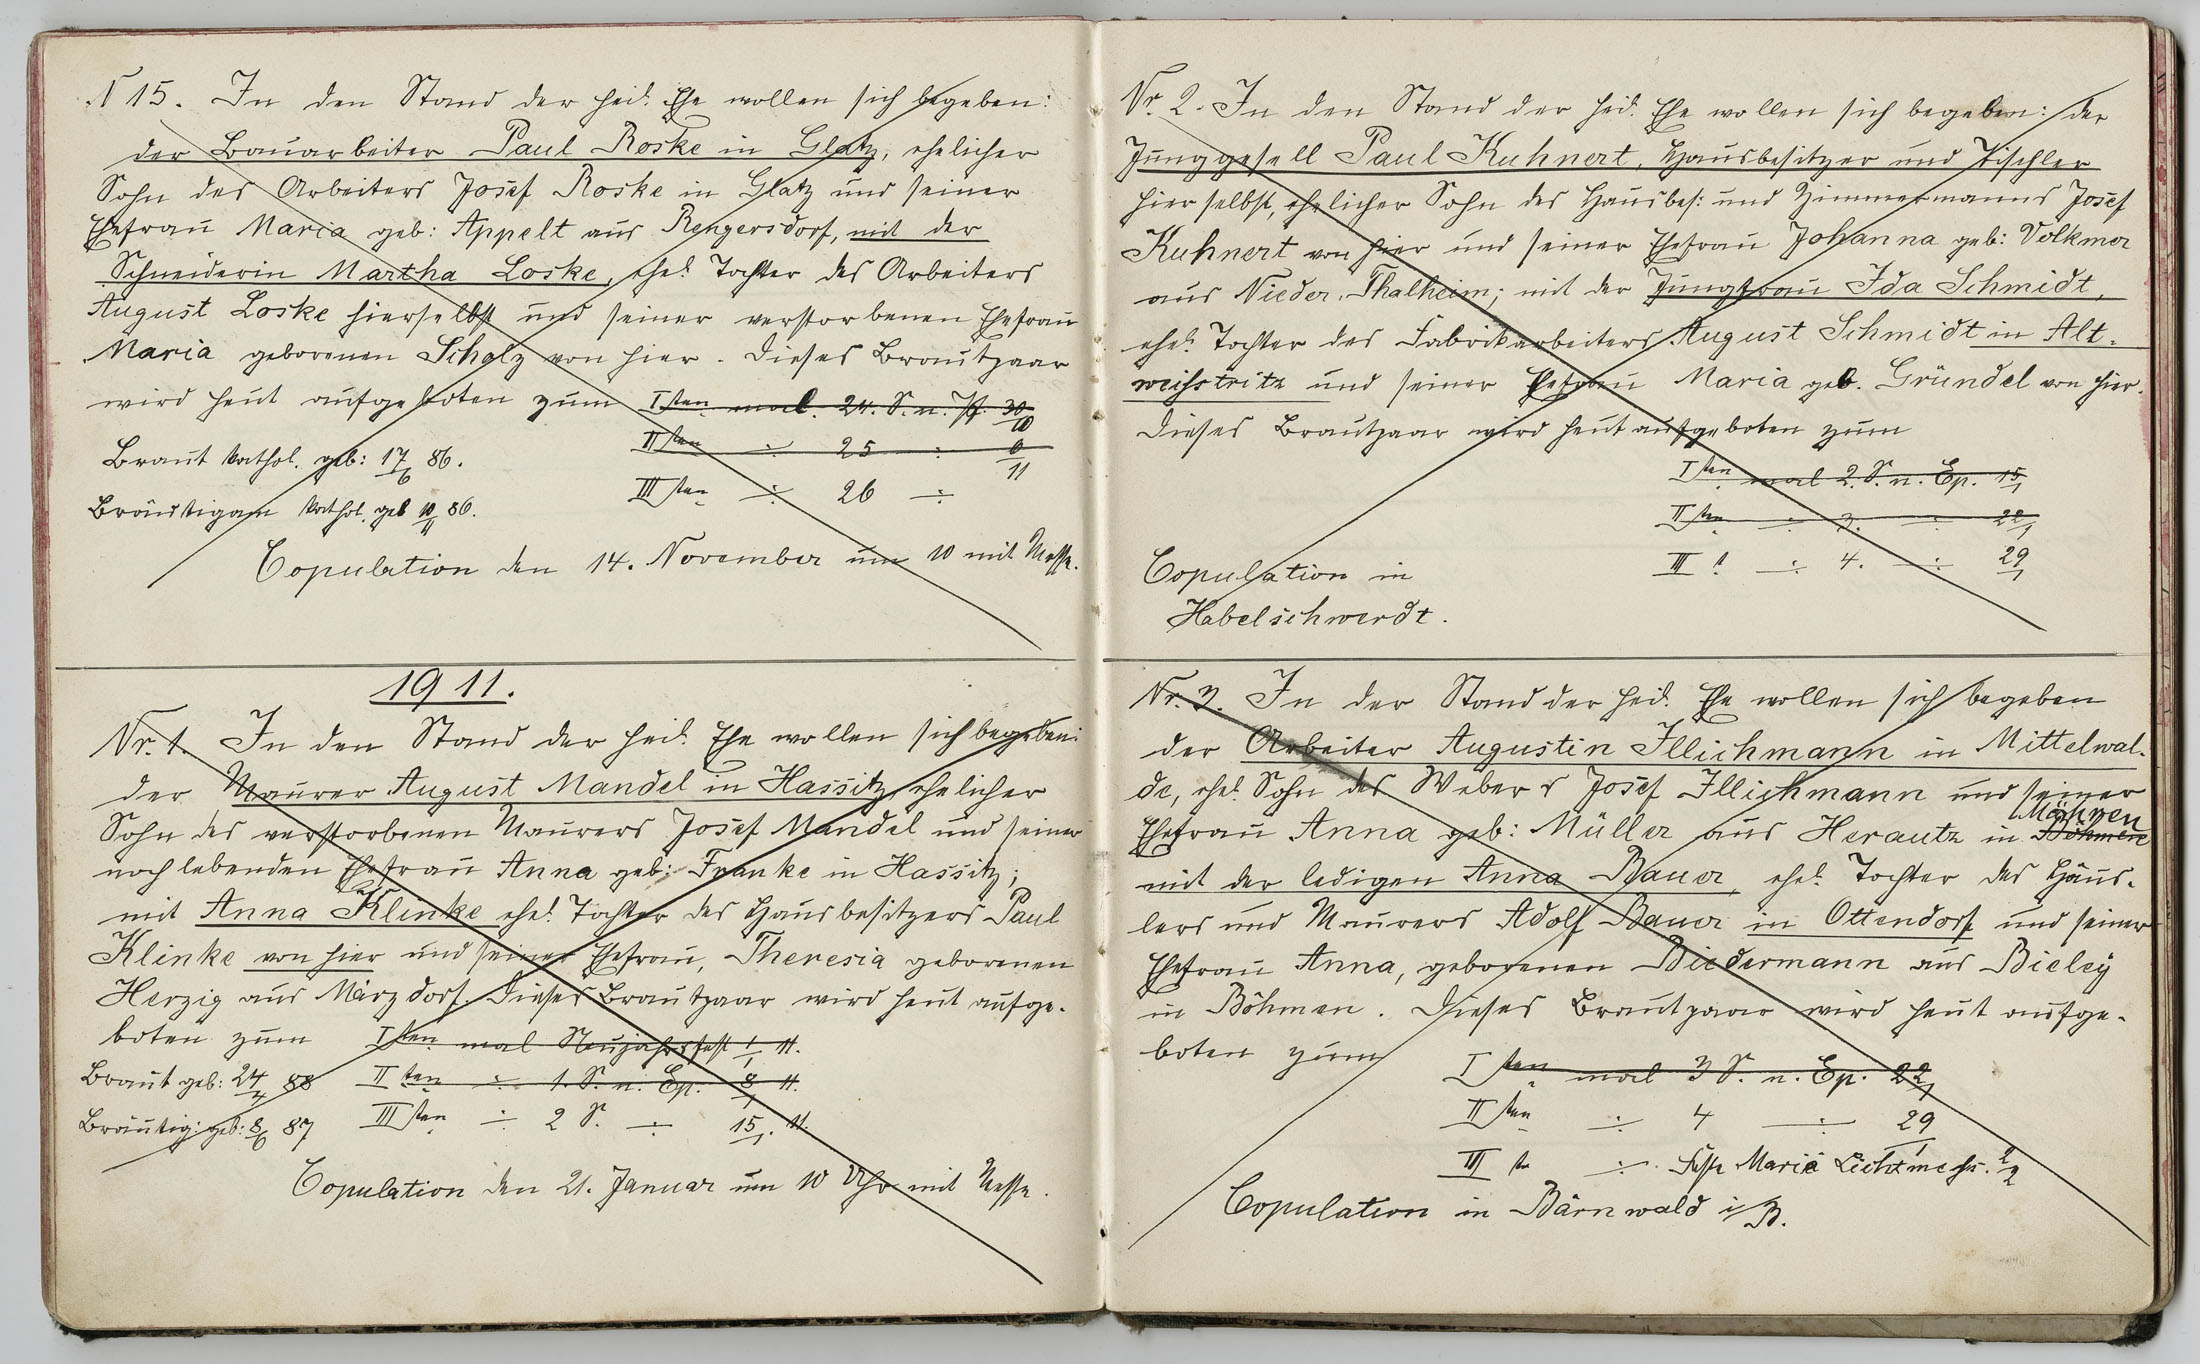 N 15. In den Stand der heil. Ehe wollen sich begeben:
der Bauarbeiter Paul Roske in Glatz, ehelicher
Sohn des Arbeiters Josef Roske in Glatz und seiner
Ehefrau Maria geb: Appelt aus Rengersdorf, mit der
Schneiderin Martha Loske, ehel. Tochter des Arbeiters
August Loske hierselbst und seiner verstorbenen Ehefrau
Maria geborenen Scholz von hier. Dieses Brautpaar
wird heut aufgeboten zum Iten mal. 24. S. n. Pf. 30/10
IIten ÷ 25 ÷ 6/11
IIIten ÷ 26 ÷
Braut kathol. geb: 17/6 86.
Bräutigam kathol. geb 10/11 86.
Copulation den 14. November um 10 mit Messe.
1911.
Nr. 1. In den Stand der heil. Ehe wollen sich begeben:
der Maurer August Mandel in Hassitz, ehelicher
Sohn des verstorbenen Maurers Josef Mandel und seiner
noch lebenden Ehefrau Anna geb: Franke in Hassitz;
mit Anna Klinke ehel. Tochter des Hausbesitzers Paul
Klinke von hier und seiner Ehefrau, Theresia geborenen
Herzig aus Märzdorf. Dieses Brautpaar wird heut aufge-
boten zum Iten mal Neujahrsfest 1/1 11.
Braut geb: 24/4 88 IIten ÷ 1. S. n. Ep. 8/1 11.
Bräutig: geb: 8/6 87 IIIten ÷ 2 S. ÷ 15/1. 11.
Copulation den 21. Januar um 10 Uhr mit Messe.
Nr. 2. In den Stand der heil. Ehe wollen sich begeben: der
Junggesell Paul Kuhnert, Hausbesitzer und Tischler
hierselbst, ehelicher Sohn des Hausbes: und Zimmermanns Josef
Kuhnert von hier und seiner Ehefrau Johanna geb: Volkmer
aus Nieder-Thalheim; mit der Jungfrau Ida Schmidt,
ehel. Tochter des Fabrikarbeiters August Schmidt in Alt-
weistritz und seiner Ehefrau Maria geb. Gründel von hier.
Dieses Brautpaar wird heut aufgeboten zum
Iten mal 2. S. n. Ep. 15/1
IIten ÷ 3. ÷ 22/1
III t ÷ 4. ÷ 29/1
Copulation in
Habelschwerdt.
Nr. 3. In der Stand der heil. Ehe wollen sich begeben
der Arbeiter Augustin Illichmann in Mittelwal-
de, ehel. Sohn des Webers Josef Illichmann und seiner
Ehefrau Anna geb: Müller aus Herautz in Böhmen Mähren
mit der ledigen Anna Bauer, ehel. Tochter des Häus-
lers und Maurers Adolf Bauer in Ottendorf und seiner
Ehefrau Anna, geborenen Biedermann aus Bieley
in Böhmen. Dieses Brautpaar wird heut aufge-
boten zum
Iten mal 3 S. n. Ep. 22/1
IIten ÷ 4 ÷ 29/1
III te ÷ Feste Mariä Lichtmess. 2/2
Copulation in Bärnwald i/B.